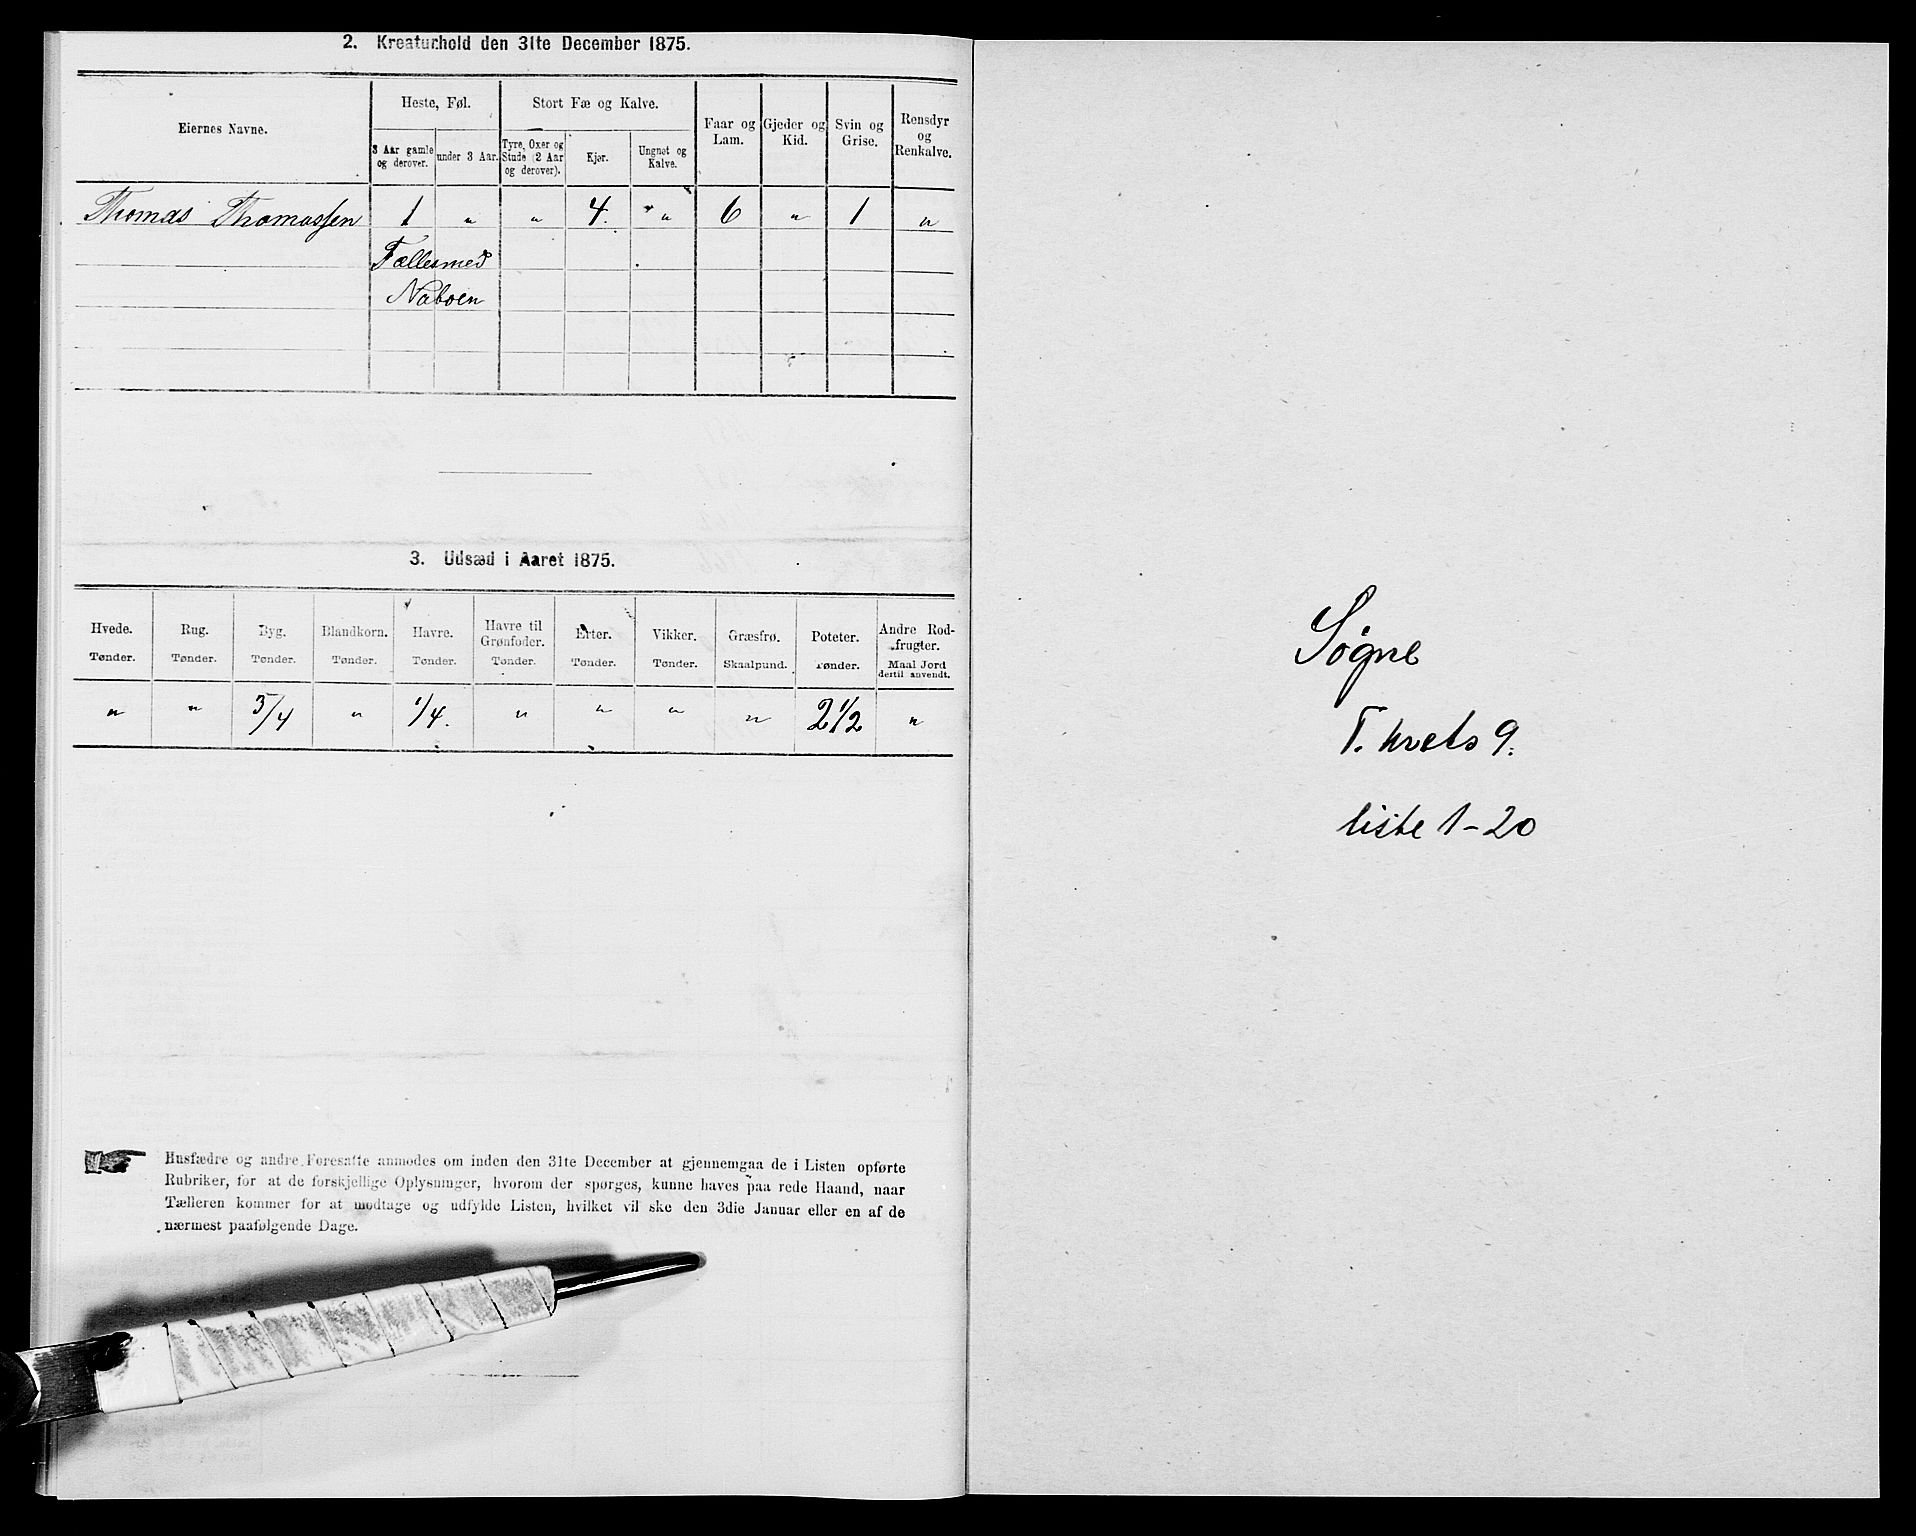 2. Kreaturhold den 31te December 1875.
Eiernes Navne.
Heste, Føl.
Stort Fæ og Kalve.
3 Aar gamle og derover.
under 3 Aar.
Tyre, Oxer og Stude (2 Aar og derover).
Kjør.
Ungnøt og Kalve.
Faar og Lam.
Gjeder og Kid.
Svin og Grise.
Rensdyr og Renkalve.
Thomas Thomassen 1 " " 4. " 6 " 1 "
Fællesmed
Naboen
3. Udsæd i Aaret 1875.
Hvede. Tønder.
Rug. Tønder.
Byg. Tønder.
Blandkorn. Tønder.
Havre. Tønder.
Havre til Grønfoder. Tønder.
Erter. Tønder.
Vikker. Tønder.
Græsfrø. Skaalpund.
Poteter. Tønder.
Andre Rodfrugter. Maal Jord dertil anvendt.
" " 3/4 " 1/4. " " " " 2 1/2 "
Husfædre og andre Foresatte anmodes om inden den 31te December at gjennemgaa de i Listen opførte
Rubriker, for at de forskjellige Oplysninger, hvorom der spørges, kunne haves paa rede Haand, naar
Tælleren kommer for at modtage og udfylde Listen, hvilket vil ske den 3die Januar eller en af de
nærmest paafølgende Dage.
Søgne
T. krets 9.
liste 1-20